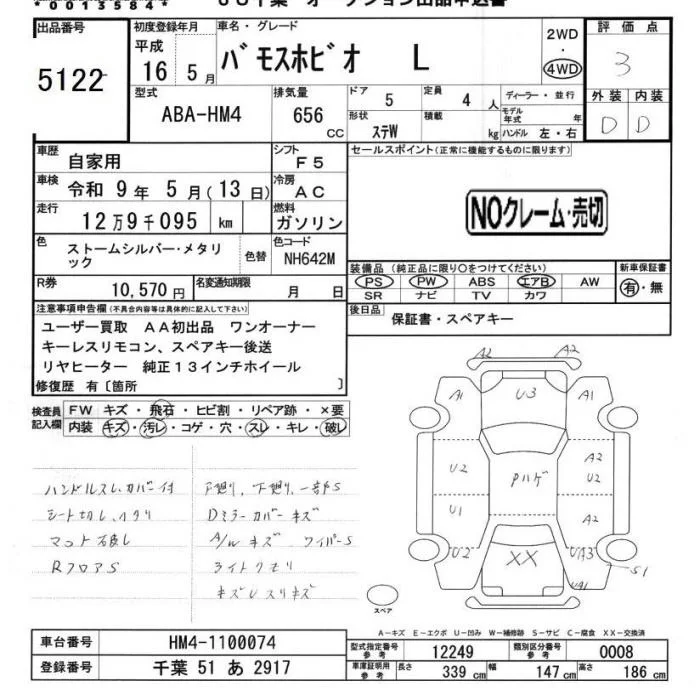 *00135844*
出品番号 初度登録年月 車名・グレード 2WD 評価点
5122 平成 16 5月 バモスホビオ L ・ 4WD 3
型式 排気量 ドア 5 定員 4人 ディーラー・並行 外装 内装
ABA-HM4 656 CC 形状 ステW 積載 kg モデル年式 年 D D
ハンドル 左・右
車歴 自家用 シフト F5 セールスポイント(正常に機能するものに限ります)
車検 令和 9年 5月(13日) 冷房 AC
走行 12万9千095 km 燃料 ガソリン NOクレーム・売切
色 ストームシルバー・メタリック 色替 色コード NH642M
装備品(純正品に限り○をつけてください) 新車保証書
R券 10,570円 名変通知期限 月 日 PS PW ABS エアB AW 有・無
SR ナビ TV カワ
注意事項申告欄(不具合内容等は具体的に記入して下さい) 後日品 保証書・スペアキー
ユーザー買取 AA初出品 ワンオーナー
キーレスリモコン、スペアキー後送
リヤヒーター 純正13インチホイール
修復歴 有〔箇所 〕
検査員記入欄 FW キズ・飛石・ヒビ割・リペア跡・×要
内装 キズ・汚レ・コゲ・穴・スレ・キレ・破レ
A2 A2
A1 U3 A1
U2 Pハゲ A2 U2
U1 A2
U2 XX UA3 S1
UA1
ハンドルスレ、カバー付 下廻り、下廻り、一部S
シート切レ、 Dミラーカバーキズ
マット破レ A/Wキズ ワイパーS
RフロアS ライトクモリ
キズUスリキズ
スペア
A-キズ E-エクボ U-凹み W-補修跡 S-サビ C-腐食 XX-交換済
車台番号 HM4-1100074 型式指定番号 参考 12249 類別区分番号 参考 0008
登録番号 千葉 51 あ 2917 車庫証明用 参考 長さ 339 cm 幅 147 cm 高さ 186 cm